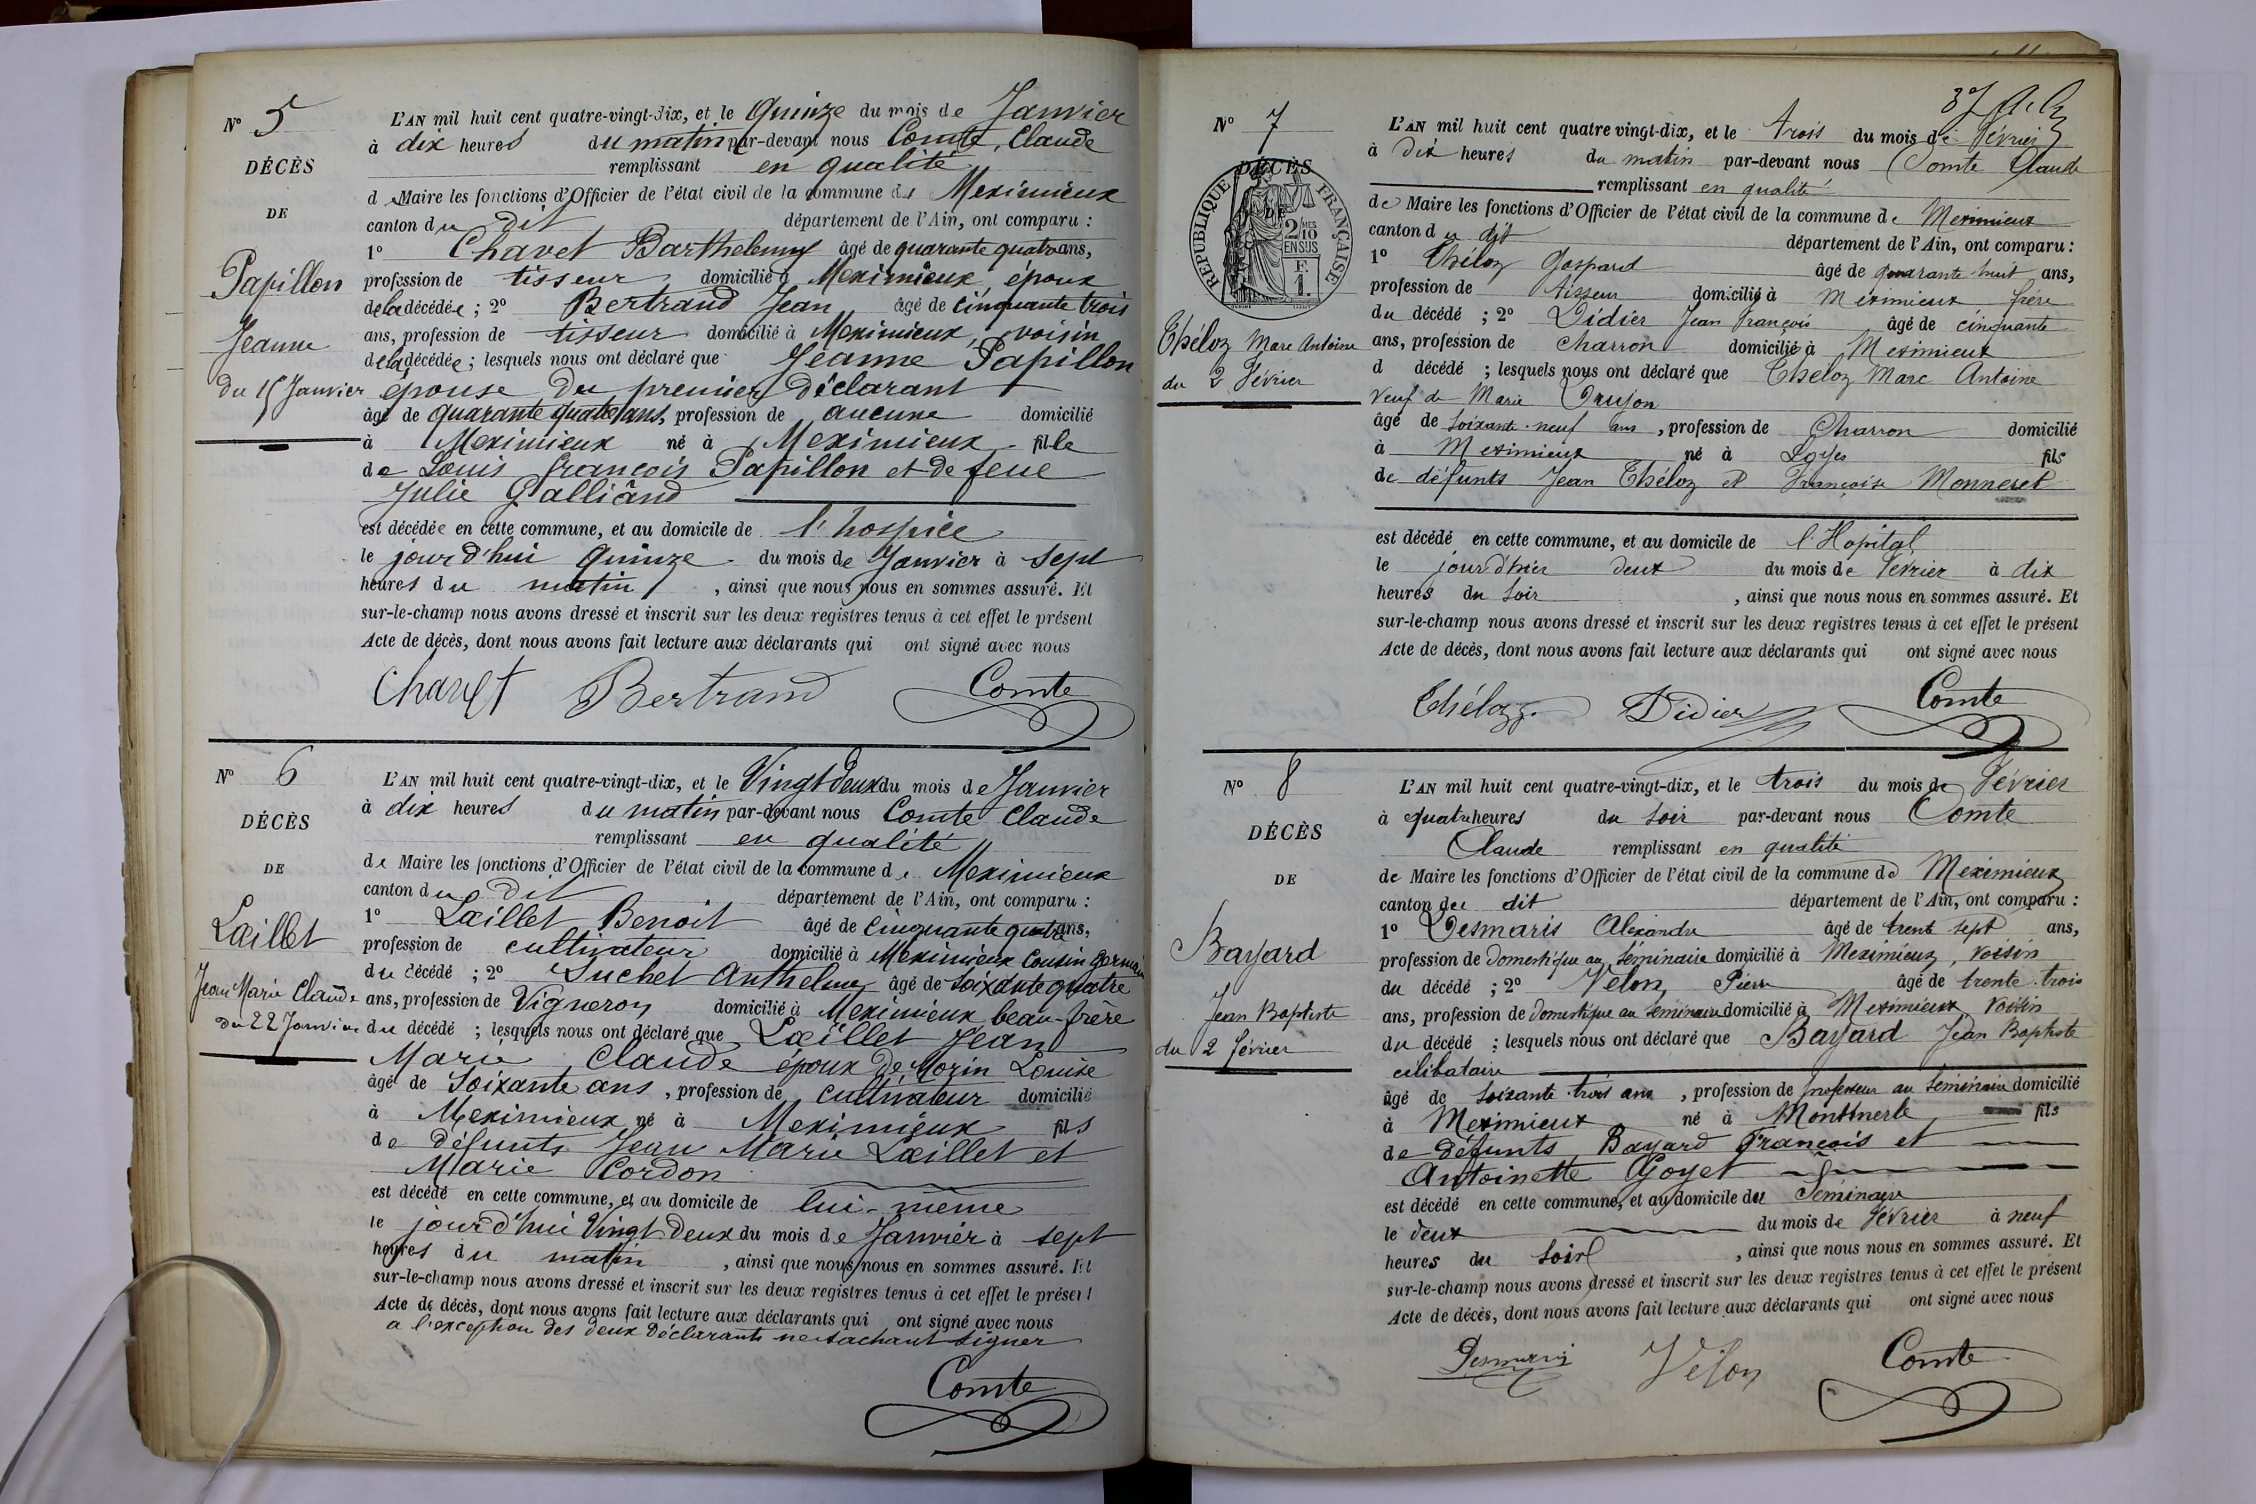 N° 5
DÉCÈS
DE
Papillon
Jeanne
du 15 Janvier
L'AN mil huit cent quatre-vingt-dix, et le Quinze du mois de Janvier
à dix heures du matin par-devant nous Comte, Claude
remplissant en qualité
de Maire les fonctions d'Officier de l'état civil de la commune de Meximieux
canton du dit département de l'Ain, ont comparu :
1° Chavet Barthelemy âgé de quarante quatre ans,
profession de tisseur domicilié à Meximieux, époux
de la décédée ; 2° Bertrand Jean âgé de cinquante trois
ans, profession de tisseur domicilié à Meximieux, voisin
de la décédée ; lesquels nous ont déclaré que Jeanne Papillon
épouse du premier déclarant
âgé de quarante quatre ans, profession de aucune domicilié
à Meximieux né à Meximieux fille
de Louis françois Papillon et de feue
Julie Galliand
est décédée en cette commune, et au domicile de l'hospice
le jour d'hui quinze du mois de Janvier à sept
heures du matin, ainsi que nous nous en sommes assuré. Et
sur-le-champ nous avons dressé et inscrit sur les deux registres tenus à cet effet le présent
Acte de décès, dont nous avons fait lecture aux déclarants qui ont signé avec nous
Chavet Bertrand Comte
N° 6
DÉCÈS
DE
Lœillet
Jean Marie Claude
du 22 Janvier
L'AN mil huit cent quatre-vingt-dix, et le Vingt deux du mois de Janvier
à dix heures du matin par-devant nous Comte Claude
remplissant en qualité
de Maire les fonctions d'Officier de l'état civil de la commune de Meximieux
canton du dit département de l'Ain, ont comparu :
1° Lœillet Benoit âgé de cinquante quatre ans,
profession de cultivateur domicilié à Meximieux cousin germain
du décédé ; 2° Suchet Anthelme âgé de soixante quatre
ans, profession de Vigneron domicilié à Meximieux beau-frère
du décédé ; lesquels nous ont déclaré que Lœillet Jean
Marie Claude époux de Morin Louise
âgé de soixante ans, profession de cultivateur domicilié
à Meximieux né à Meximieux fils
de défunts Jean Marie Lœillet et
Marie Cordon
est décédé en cette commune, et au domicile de lui-même
le jour d'hui Vingt deux du mois de Janvier à sept
heures du matin, ainsi que nous nous en sommes assuré. Et
sur-le-champ nous avons dressé et inscrit sur les deux registres tenus à cet effet le présent
Acte de décès, dont nous avons fait lecture aux déclarants qui ont signé avec nous
a l'exception des deux déclarants ne sachant signer
Comte
37
N° 7
DÉCÈS
DE
RÉPUBLIQUE FRANÇAISE
2/10 MES
EN SUS
F.
1.
Théloz Marc Antoine
du 2 Février
L'AN mil huit cent quatre vingt-dix, et le trois du mois de Février
à Dix heures du matin par-devant nous Comte Claude
remplissant en qualité
de Maire les fonctions d'Officier de l'état civil de la commune de Meximieux
canton du dit département de l'Ain, ont comparu :
1° Théloz Gaspard âgé de quarante huit ans,
profession de tisseur domicilié à Meximieux frère
du décédé ; 2° Didier Jean François âgé de cinquante
ans, profession de charron domicilié à Meximieux
d décédé ; lesquels nous ont déclaré que Théloz Marc Antoine
Veuf de Marie
âgé de soixante-neuf ans, profession de Charron domicilié
à Meximieux né à Loyes fils
de défunts Jean Théloz et Françoise Monneret
est décédé en cette commune, et au domicile de l'Hopital
le jour d'hier deux du mois de Février à dix
heures du soir, ainsi que nous nous en sommes assuré. Et
sur-le-champ nous avons dressé et inscrit sur les deux registres tenus à cet effet le présent
Acte de décès, dont nous avons fait lecture aux déclarants qui ont signé avec nous
Théloz Didier Comte
N° 8
DÉCÈS
DE
Bayard
Jean Baptiste
du 2 février
L'AN mil huit cent quatre-vingt-dix, et le trois du mois de Février
à quatre heures du soir par-devant nous Comte
Claude remplissant en qualité
de Maire les fonctions d'Officier de l'état civil de la commune de Meximieux
canton du dit département de l'Ain, ont comparu :
1° Desmaris Alexandre âgé de trente sept ans,
profession de domestique au Séminaire domicilié à Meximieux, voisin
du décédé ; 2° Velon Pierre âgé de trente-trois
ans, profession de domestique au Séminaire domicilié à Meximieux voisin
du décédé ; lesquels nous ont déclaré que Bayard Jean Baptiste
célibataire
âgé de soixante-trois ans, profession de professeur au Séminaire domicilié
à Meximieux né à Montmerle fils
de défunts Bayard François et
Antoinette Goyet
est décédé en cette commune, et au domicile du Séminaire
le deux du mois de Février à neuf
heures du soir, ainsi que nous nous en sommes assuré. Et
sur-le-champ nous avons dressé et inscrit sur les deux registres tenus à cet effet le présent
Acte de décès, dont nous avons fait lecture aux déclarants qui ont signé avec nous
Desmaris Velon Comte